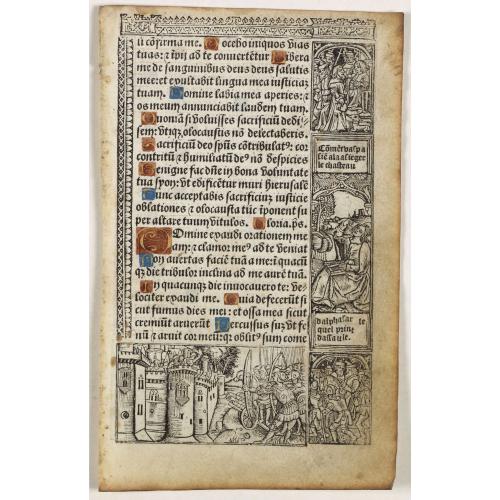 ū cōfirma me. Docebo iniquos vias
tuas: ⁊ īpij ad te conuertētur Libera
me de sanguinibus deus deus salutis
mee: et exultabit lingua mea iusticiaȝ
tuam. Domine labia mea aperies: et
os meum annunciabit laudem tuam.
Quonā si voluisses sacrificiū dedis-
sem: vtiqȝ olocaustis nō delectaberis.
Sacrificiū deo spūs cōtribulatꝰ: cor
contritū ⁊ humiliatū deꝰ nō despicies
Benigne fac dñe in bona voluntate
tua syon: vt edificētur muri hierusalē
Tunc acceptabis sacrificiū iusticie
oblationes ⁊ olocausta tūc īponent su
per altare tuum vitulos. Gloria. ps.
Domine exaudi orationem me
am: ⁊ clamor meꝰ ad te veniat
Non auertas faciē tuā a me: ī quacū
qȝ die tribulor inclina ad me aurē tuā.
In quacunqȝ die inuocauero te: ve-
lociter exaudi me. Quia defecerūt si
cut fumus dies mei: et ossa mea sicut
cremiū aruerūt Percussus suȝ vt fe
nū ⁊ aruit cor meū: qȝ oblitꝰ sum come
Cōmēt vaspa
siē ala asieger
le chasteau
dalphasar te
quel print
dassault.